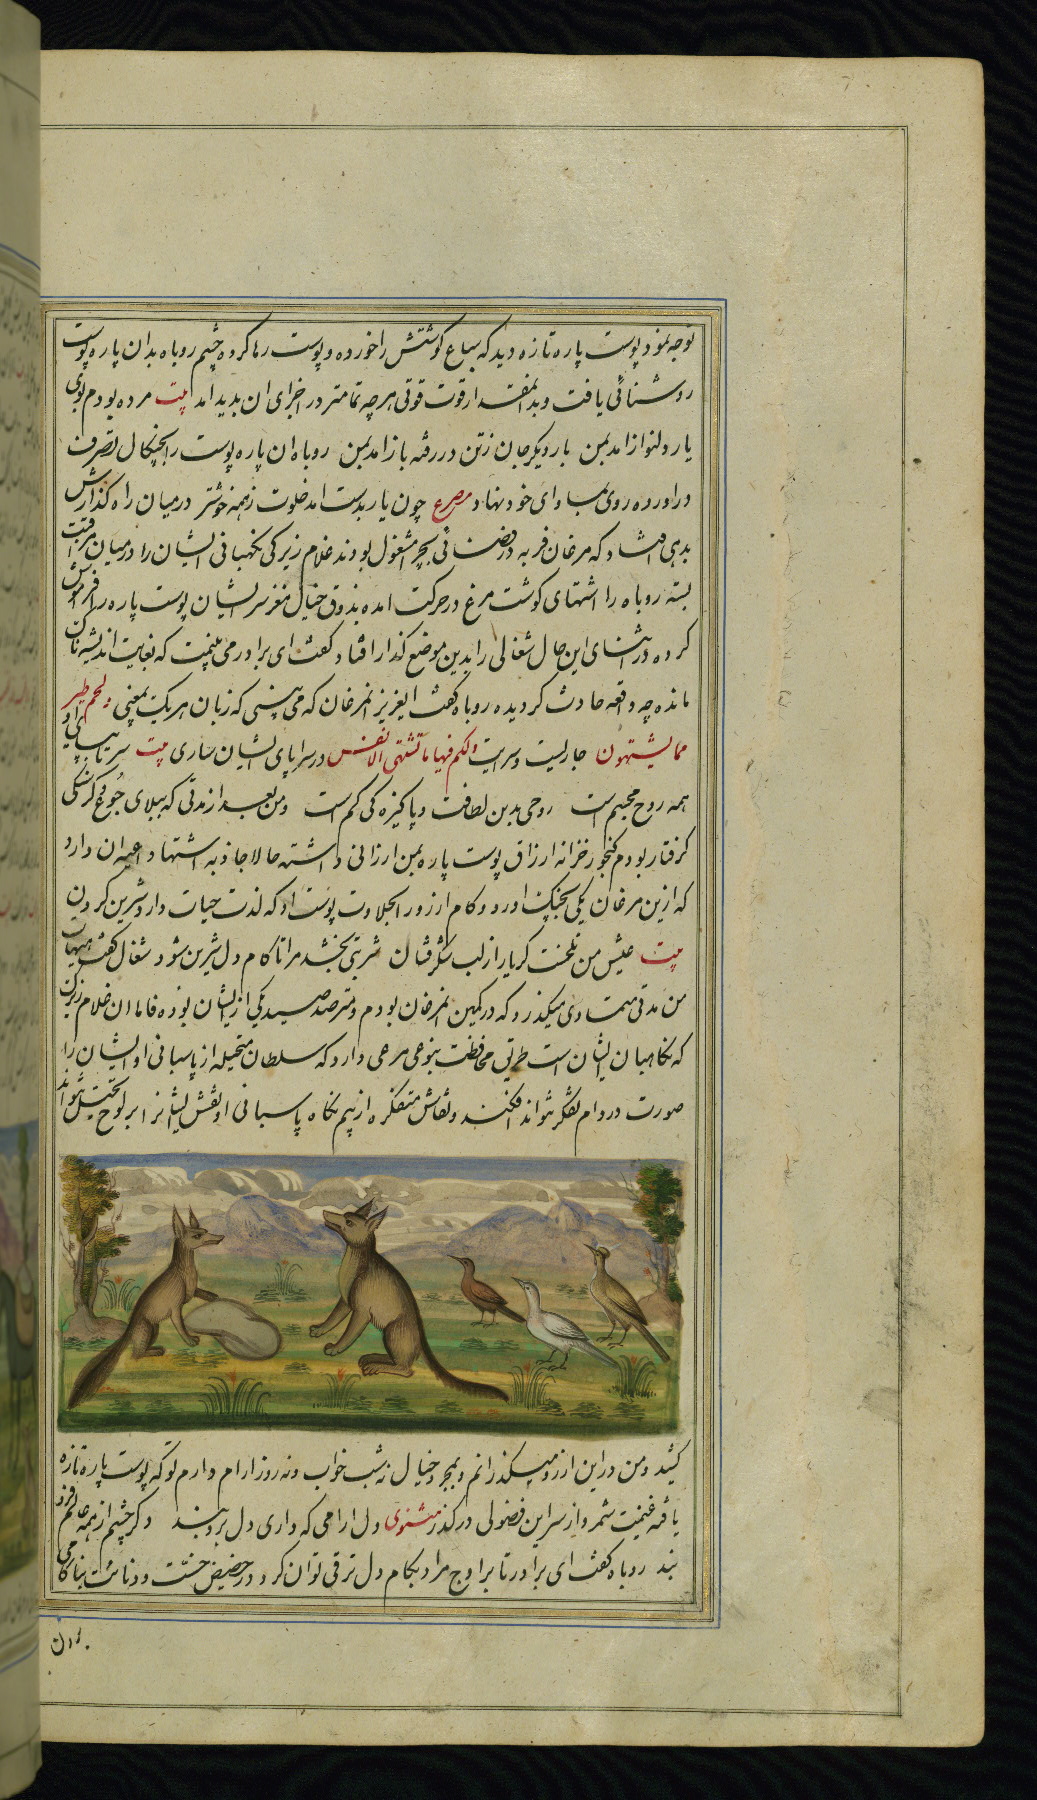 توجه نمود پوست پاره تازه دید که سباع گوشتش را خورده و پوست رها کرده چشم روباه بدان پاره پوست
روشنائی یافت و بدانمقدار قوت قوتی هر چه تمامتر در اجزای ان پدید امد بیت مرده بودم بوی
یار دلنواز امد بمن بار دیگر جان ز تن در رفته باز امد بمن روباه ان پاره پوست را بچنکال تصرف
در اورده روی بماوای خود نهاد مصرع چون یار بدست امد خلوت ز همه خوشتر در میان راه گذارش
بدهی افتاد که مرغان فربه در فضائی بچرا مشغول بودند غلام زیرکی نکهبانی ایشان را در میان مرقبت
بسته روباه را اشتهای گوشت مرغ در حرکت امده بذوق خیال مغز سر ایشان پوست پاره را فراموش
کرده در اثنای این حال شغالی را بدین موضع گذار افتاد گفت ای برادر می بینمت که بغایت اندیشه ناک
مانده چه واقعه حادث گردیده روباه گفت ایعزیز انمرغان که می بینی که زبان هر یک بمعنی و لحم طیر
مما یشتهون جاریست و سر ایت ولکم فیها ما تشتهی الانفس در سراپای ایشان ساری بیت سر تا بپای او
همه روح مجسم است روحی بدین لطافت و پاکیزه کی کم است و من بعد از مدتی که ببلای جوع گرسنگی
گرفتار بودم گنجور خزانه ارزاق پوست پاره بمن ارزانی داشته حالا جاذبه اشتها داعیه ان دارد
که ازین مرغان یکی بچنگ اورد و کام ارزو را بحلاوت پوست او که لذت حیات دارد شیرین کردن
بیت عیش من تلخست گر یار از لب شکر فشان شربتی بخشد مرا تا کام دل شیرین شود شغال گفت هیهات
من مدتی متمادی میگذرد که در کمین انمرغان بودم و مترصد صید یکی از ایشان بوده فاما ان غلام زیرک
که نکاهبان ایشان است طریق محافظت بنوعی مرعی دارد که سلطان متخیله از پاسبانی او ایشان را
صورت در دام تفکر نتواند افکند و نقاش متفکره از بیم نگاه پاسبانی او نقش ایشانرا بر لوح تخیل نتواند
کشید و من در این ارزو میگذرانم و بمجرد خیال نه شب خواب و نه روز ارام دارم تو که پوست پاره تازه
یافته غنیمت شمر و از سر این فضولی در گذر مثنوی دل ارامی که داری دل برو بند دگر چشم از همه عالم فرو
بند روباه گفت ای برادر تا بر اوج مراد بکام دل ترقی توان کرد در حضیض خست و دنائت بناکامی